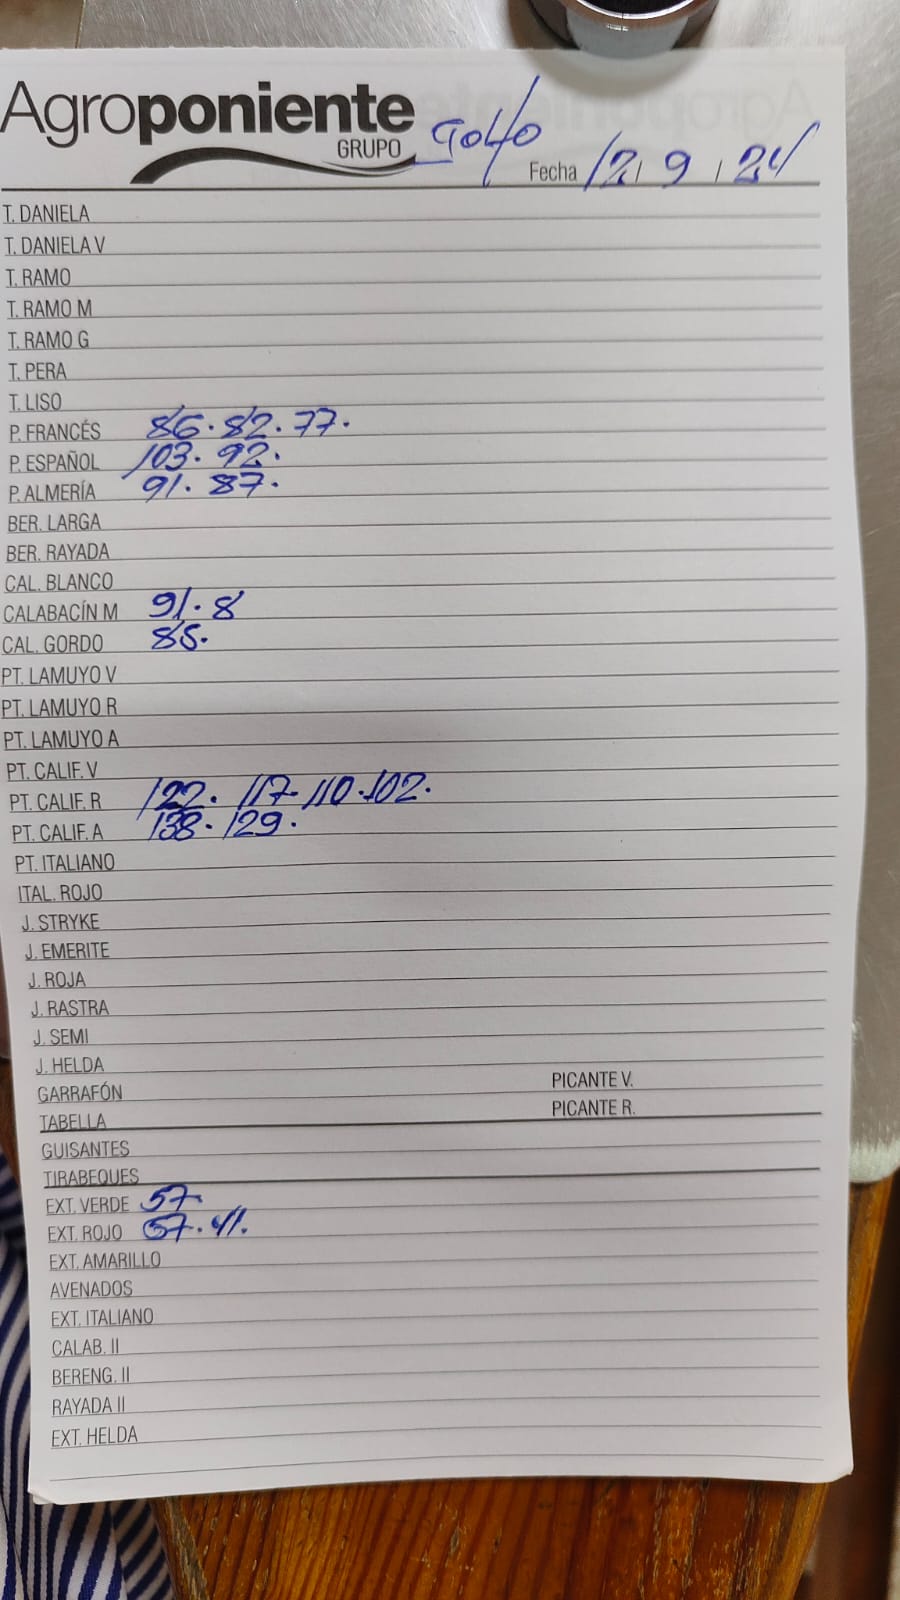 Agroponiente
GRUPO
Golfo
Fecha 12 / 9 / 24
T. DANIELA
T. DANIELA V
T. RAMO
T. RAMO M
T. RAMO G
T. PERA
T. LISO
P. FRANCÉS 86. 82. 77.
P. ESPAÑOL 103. 92.
P. ALMERÍA 91. 87.
BER. LARGA
BER. RAYADA
CAL. BLANCO
CALABACÍN M 91. 8
CAL. GORDO 85.
PT. LAMUYO V
PT. LAMUYO R
PT. LAMUYO A
PT. CALIF. V
PT. CALIF. R 122. 117. 110. 102.
PT. CALIF. A 138. 129.
PT. ITALIANO
ITAL. ROJO
J. STRYKE
J. EMERITE
J. ROJA
J. RASTRA
J. SEMI
J. HELDA
GARRAFÓN PICANTE V.
TABELLA PICANTE R.
GUISANTES
TIRABEQUES
EXT. VERDE 57.
EXT. ROJO 57. 41.
EXT. AMARILLO
AVENADOS
EXT. ITALIANO
CALAB. II
BERENG. II
RAYADA II
EXT. HELDA